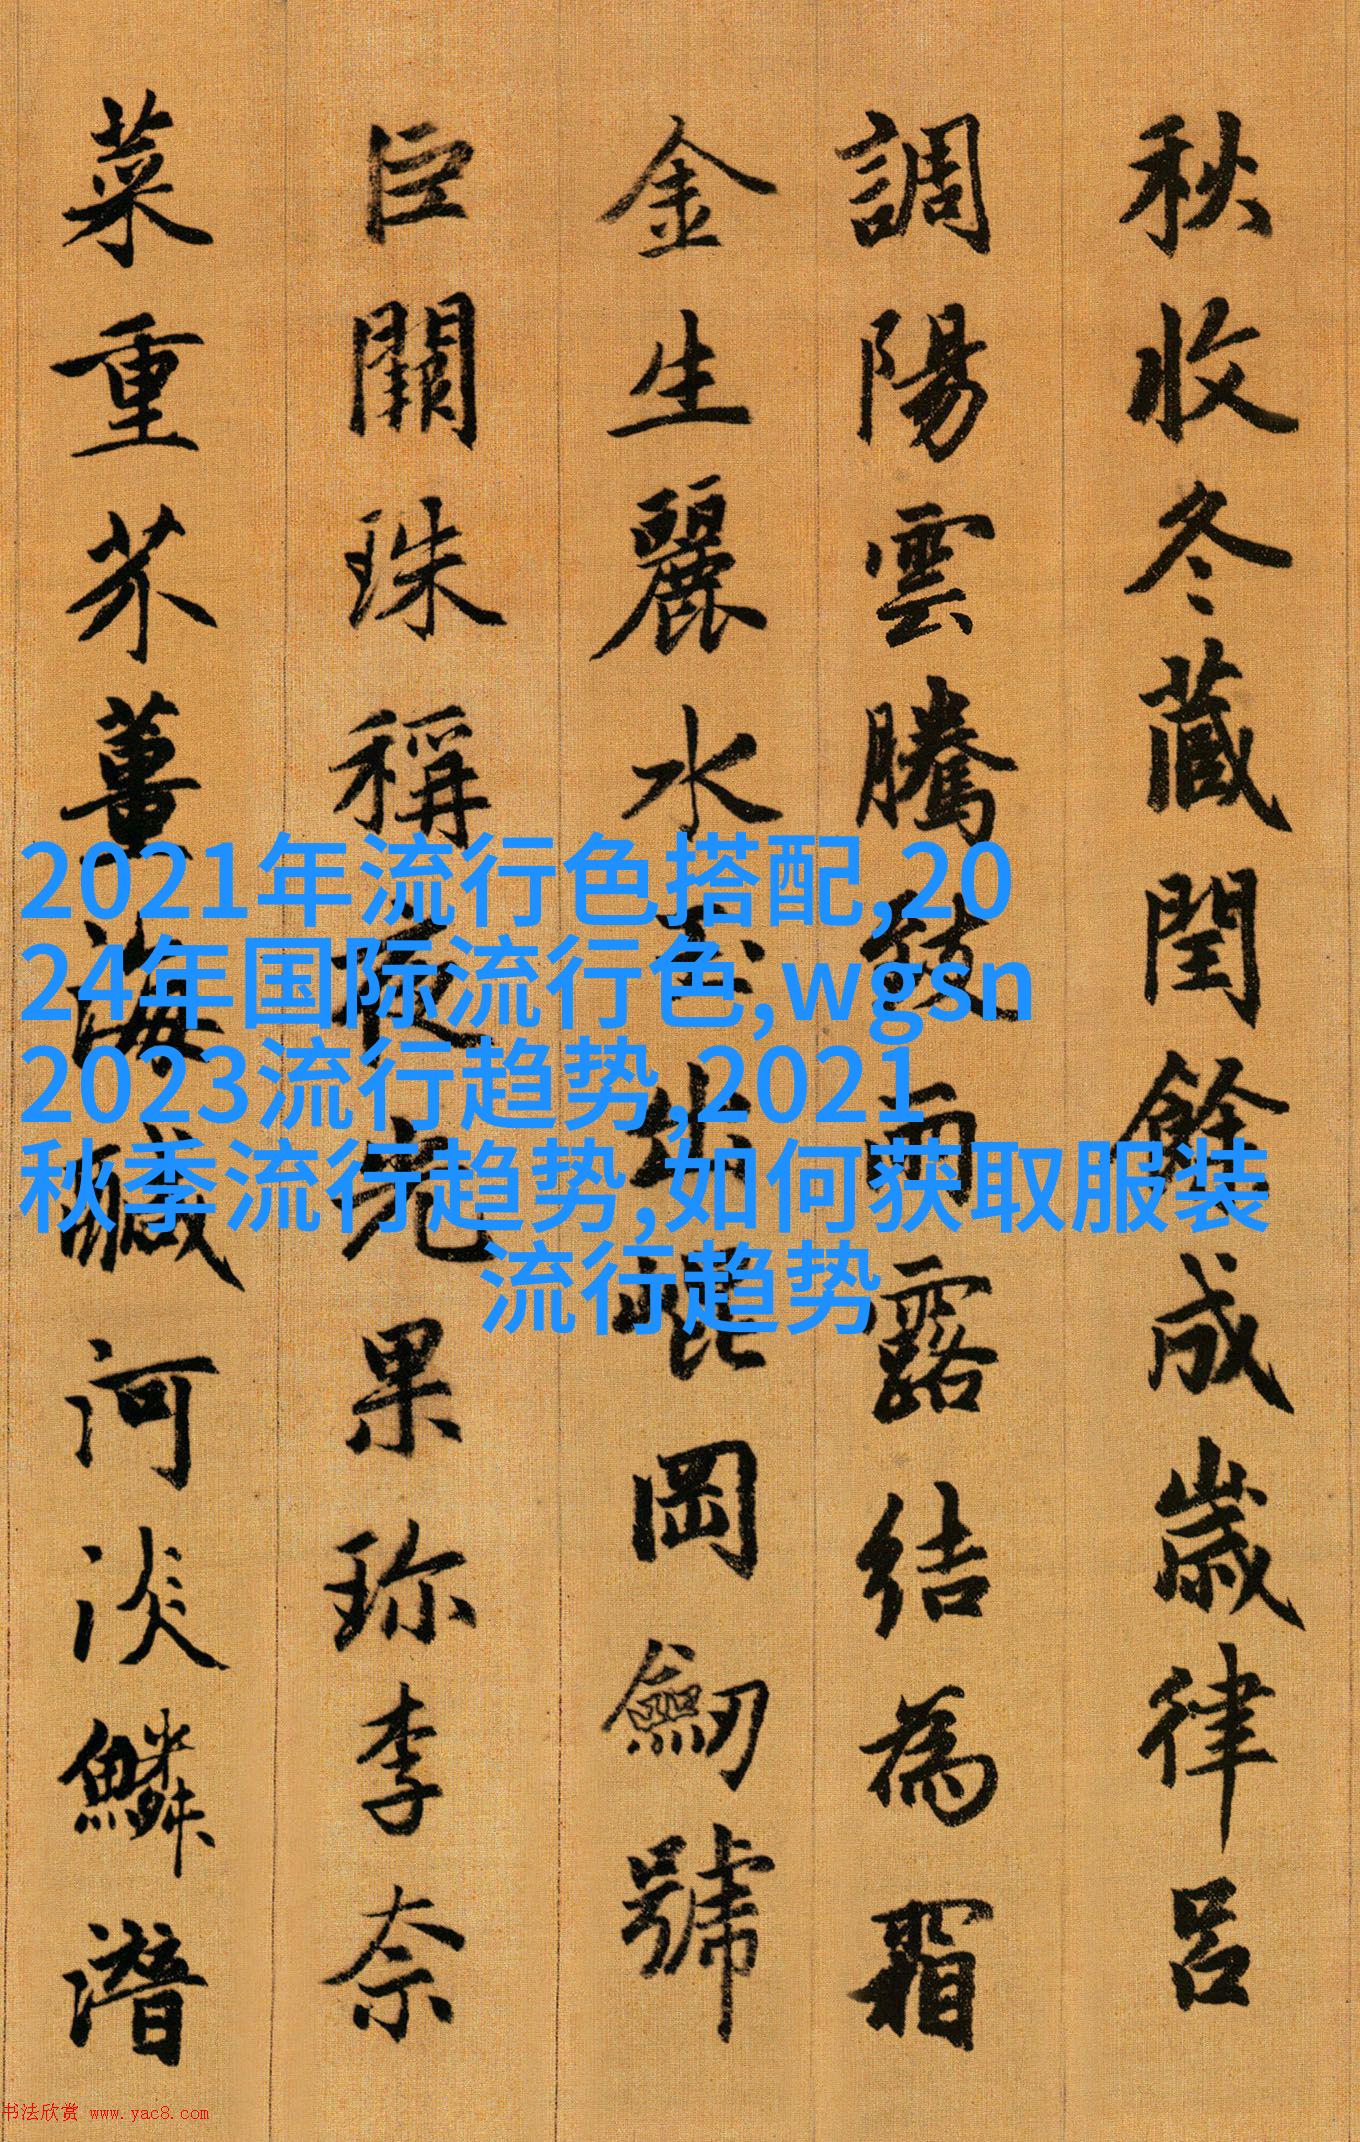 秋收冬藏閏餘成歲律呂
調陽雲騰致雨露結為霜
金生麗水玉出崐岡劒號
巨闕珠稱夜光果珎李奈
菜重芥薑海鹹河淡鱗潛
2021年流行色搭配,20
24年国际流行色,wgsn
2023流行趋势,2021
秋季流行趋势,如何获取服装
流行趋势
书法欣赏 www.yac8.com